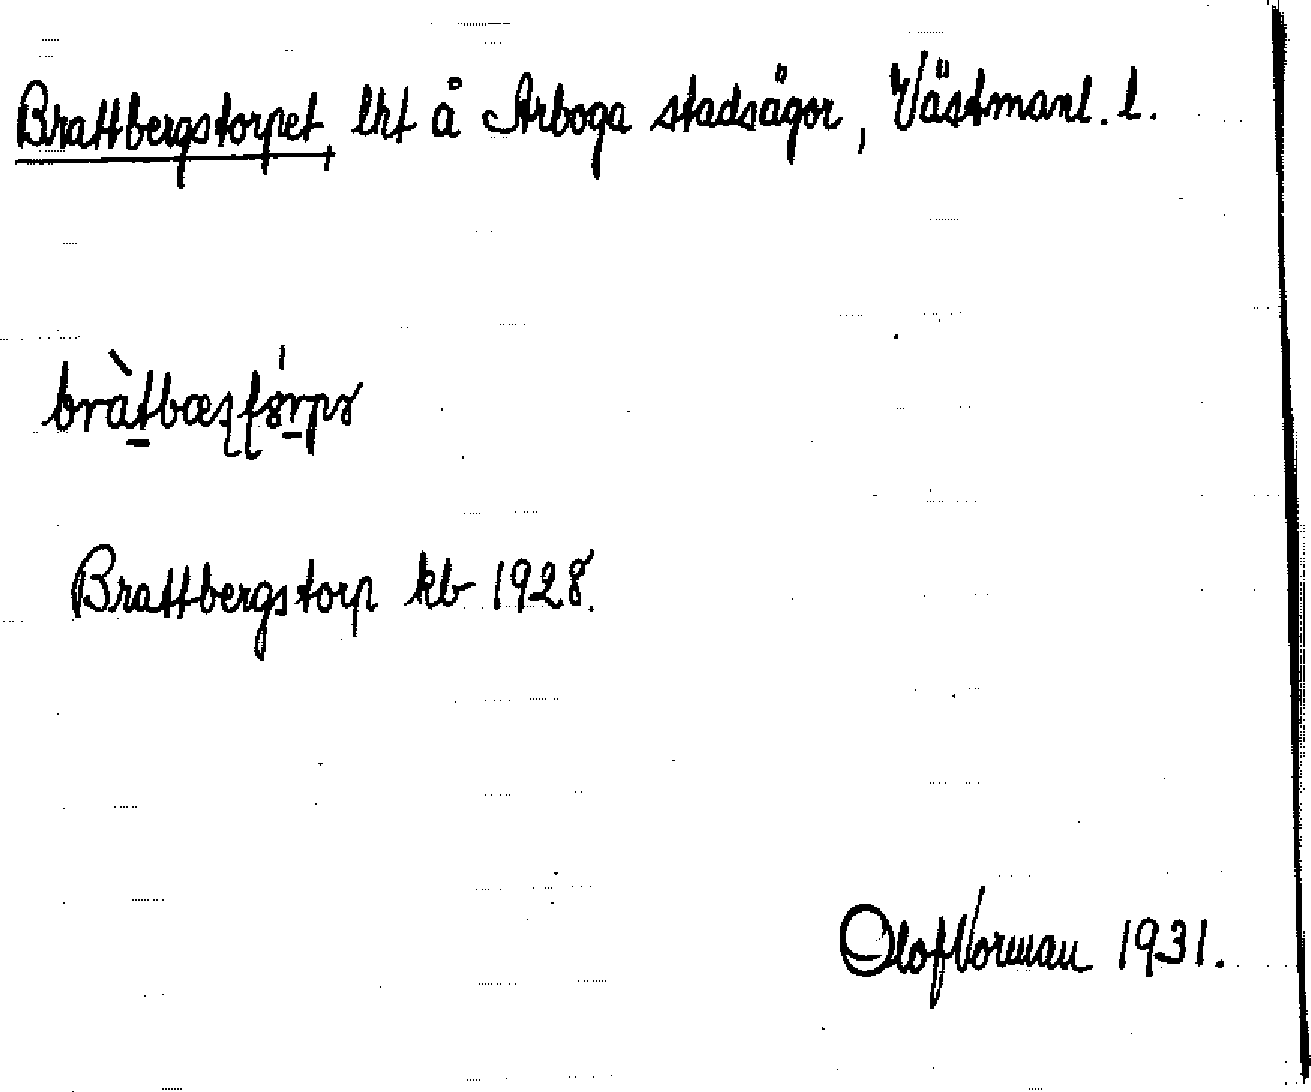 Brattbergstorpet, lht å Arboga stadsägor, Västmanl. l.
Brattbergstorp kb 1928.
Olof Vorman 1931.